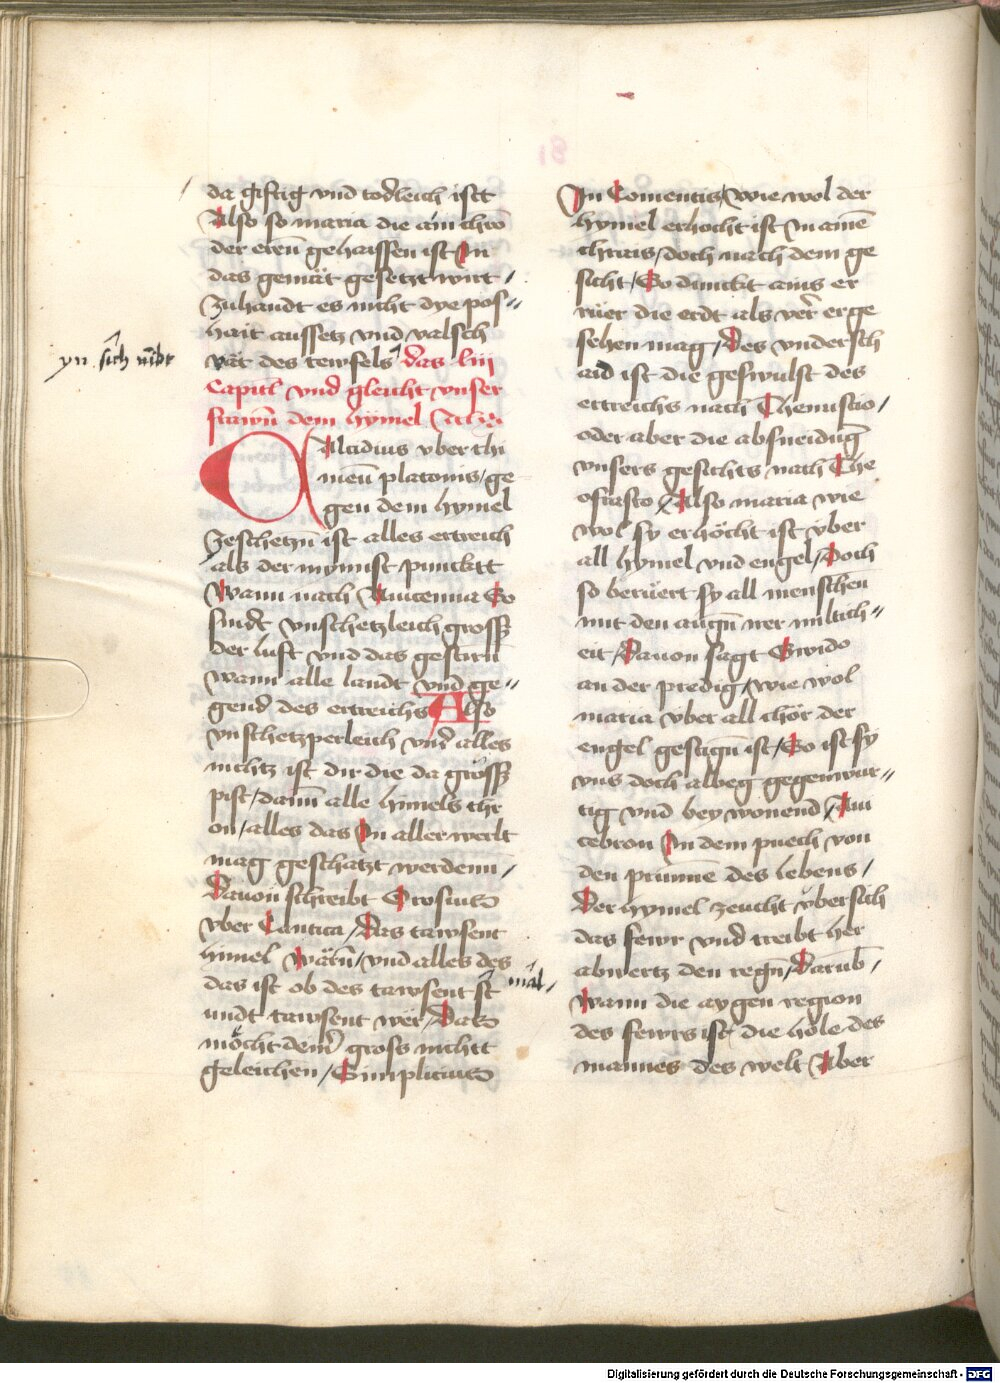 da giftig vnd tödleich istt
Also so maria die ain chrō
der eren̄ gehaissen ist In
das gemüt gesetzt wirt /
Zuhandt es nicht dye pos-
hait aussetz vnd valsch
vät des tewfels das liij
yn sich nībt
Capitl vnd gleicht vnser
frawn̄ dem hymel
Alcidius vber thi
meū platonis / ge
gen dem hymel
Zeschetzn̄ ist alles ertreich
als der mynnist punckt
Wann nach Auicenna So
sindt vnschetzleich gross
der luft vnd das gestirn̄
wann alle landt vnd ge-
gend des ertreichs Also
vnschetzperleich vnd alles
nichtz ist dir die da gröss
pist / dann alle himels thr
on / alles das In aller werlt
mag geschätzt werdenn /
Dauon schreibt Orosius
vber Cantica / Das tawsent
himel wärn̄ / vnd alles des
das ist ob des tawsent st
mal /
undt tawsent wer / Das
möcht deinr gross nichtt
geleichen / Simplicius
In Comentis / wie wol der
hymel erhocht ist In ainē
chrais / doch nach dem ge
sicht / So dunckt ains er
rüer die erdt als verr erge
sehen mag / Des vndersch
aid ist die geswulst des
ertreichs nach Themistio /
oder aber die absneidūg
vnsers gesichts nach The
ofrasto / Also maria wie
wol sy erhöcht ist vber
all hymel vnd engel / Doch
so berüert sy all menschen
mit den augn̄ irer miltich-
eit / Dauon sagt Gwido
an der predig / wie wol
maria vber all chör der
engel gestign̄ ist / So ist sy
vns doch albeg gegenwur-
tig vnd bey wonend / Aui
cebron In dem puech von
den prunnē des lebens /
Der hymel zeucht vbersich
das fewr vnd treibt her
abwertz den regn̄ / Darūb /
Wann die aygen region
des fewrs ist die höle des
mannes des welt Aber
Digitalisierung gefördert durch die Deutsche Forschungsgemeinschaft - DFG